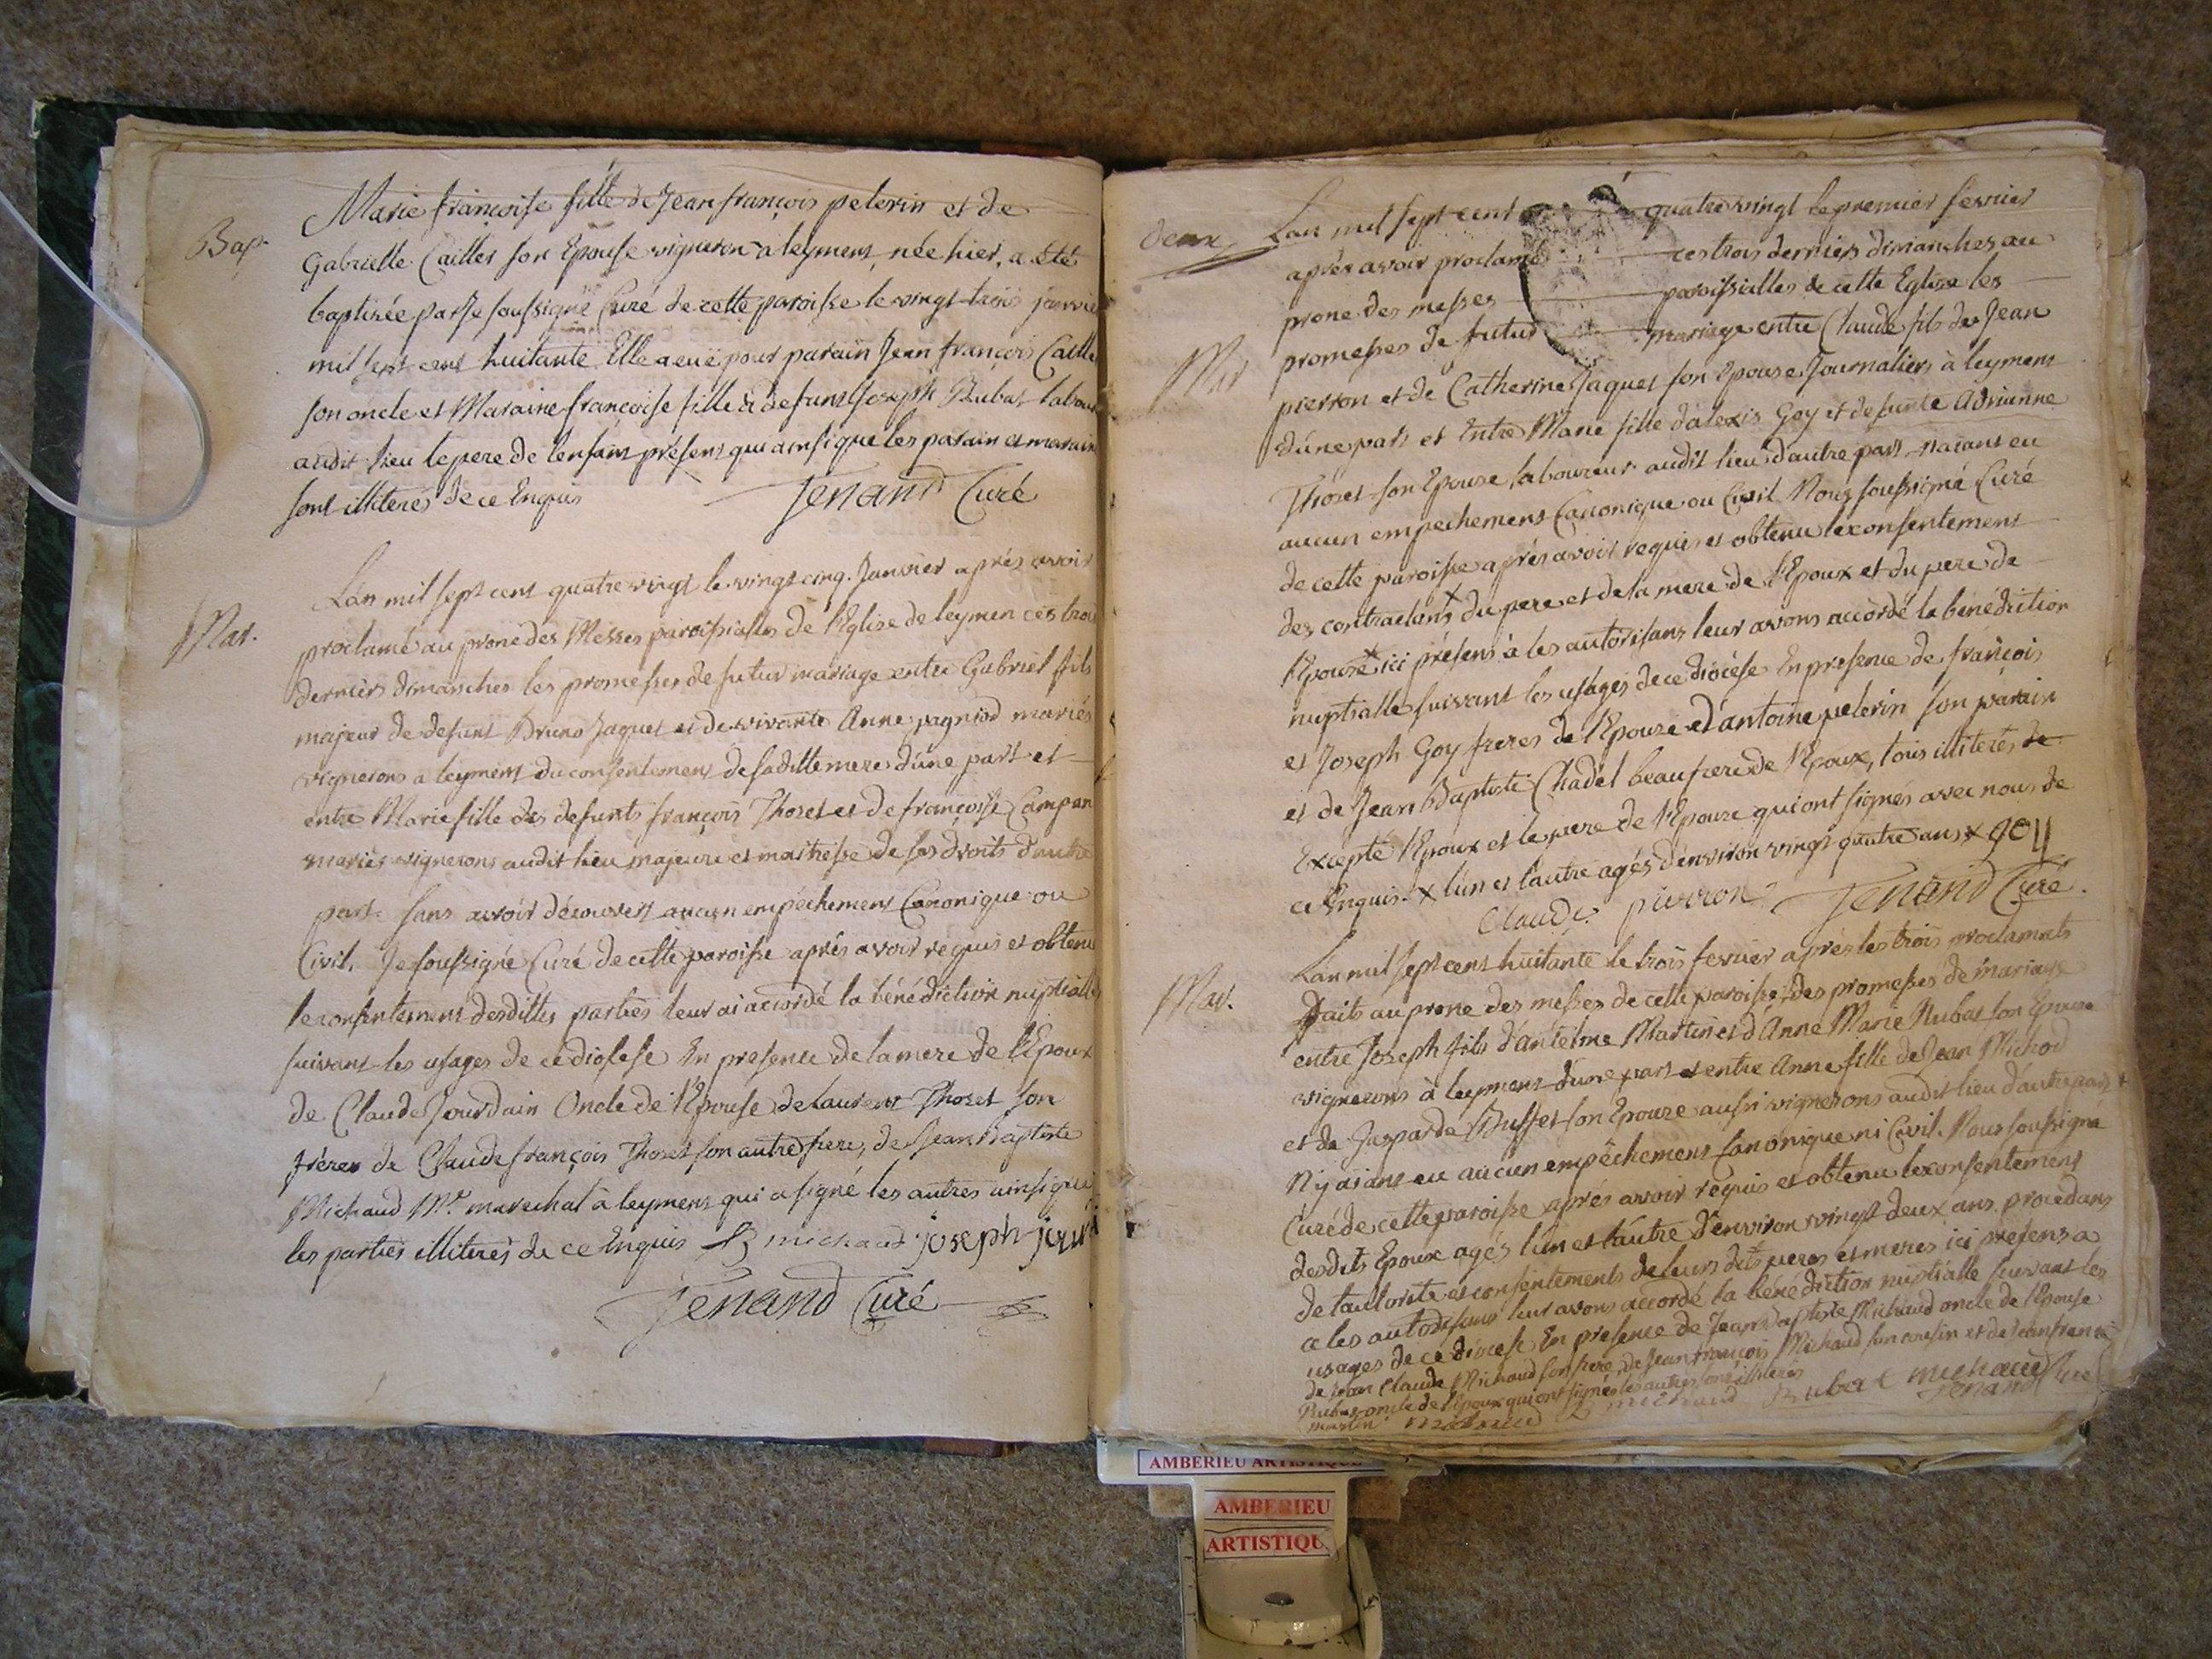 Bap.
Marie françoise fille de Jean françois pelerin et de
Gabrielle Cailler son Epouse vigneron a leyment, née hier, a été
baptisée par Je soussigné Curé de cette paroisse le vingt trois janvie
mil sept cent huitante. Elle a eüe pour parain Jean françois Caille
son oncle et Maraine françoise fille de defunt Joseph Rubat labou
audit lieu le pere de lenfant présent qui ainsi que les parain et maraine
sont illiterés de ce Enquis Jenand Curé
Mar.
Lan mil sept cent quatre vingt le vingt cinq. Janvier aprés avoir
proclamé au prone des Messes paroissialles de l'Eglise de leymen ces trois
derniers dimanches les promesses de futur mariage entre Gabriel fils
majeur de defunt Bruno Jaquet et de vivante Anne pagniod mariés
vignerons a leyment du consentement de sa ditte mere d'une part et
entre Marie fille des defunts françois Thoset et de françoise Campan
mariés vignerons audit lieu majeure et maitresse de ses droits d'autre
part. sans avoir découvert aucun empéchement Canonique ou
Civil. Je soussigné Curé de cette paroisse aprés avoir requis et obtenu
le consentement desdittes parties leur ai accordé la bénédiction nuptialle
suivant les usages de ce diocese En presence de la mere de l'Epoux
de Claude Jourdain Oncle de l'Epouse de Laurent Thoset son
frérer de Claude françois Thoset son autre frere, de Jean Baptiste
Michaud Me. marechal à leyment qui a signé les autres ainsi que
les parties illiterés de ce Enquis michaud joseph
Jenand Curé
deux
Lan mil sept cent quatre vingt le premier fevrier
aprés avoir proclamé ces trois derniers dimanches au
prone des messes paroissialles de cette Eglise les
Mar
promesses de futur mariage entre Claude fils de Jean
pierron et de Catherine Jaquet son Epouse Journaliers à leyment
d'une part et Entre Marie fille d'alexis Goy et defunte Adrianne
Thoset son Epouse laboureur audit lieu d'autre part. n'aiant eu
aucun empechement Canonique ou Civil. Nous soussigné Curé
de cette paroisse aprés avoir requis et obtenu le consentement
des contractans x du pere et de la mere de l'Epoux et du pere de
l'Epouse ici présens à les autorisans leur avons accordé la bénédiction
nuptialle suivant les usages de ce diocése En presence de françois
et Joseph Goy freres de l'Epouse et d'antoine pelerin son parain
et de Jean Baptiste Chadel beaufrere de l'Epoux, tous illiterés de
Excepté l'Epoux et le pere de l'Epouze qui ont signés avec nous de
ce Enquis. x lun et lautre agés d'environ vingt quatre ans x goy
Claude pierron Jenand Curé.
Mar.
Lan mil sept cent huitante le trois fevrier aprés les trois proclamats
faits au prone des messes de cette paroisse des promesses de mariage
entre Joseph fils d'antelme Martin et d'Anne Marie Rubat son Epouse
vignerons à leyment d'une part et entre Anne fille de Jean Michod
et de Gasparde Buffet son Epouze aussi vignerons audit lieu d'autre part
N'y aiant eu aucun empéchement Canonique ni Civil. Nous soussigné
Curé de cette paroisse aprés avoir requis et obtenu le consentement
desdits Epoux agés lun et l'autre d'environ vingt deux ans. procedans
de lautorité et consentements de leurs dits peres et meres ici presens a
ce les autorisans leur avons accordé la bénédiction nuptialle suivant les
usages de ce diocese En presence de Jean Baptiste Michaud oncle de l'Epouse
de Jean Claude Michaud son frere, de Jean françois Michaud son cousin et de Jean francois
Rubat oncle de l'Epoux qui ont signés les autres sont illiterés
martin michaud michaud Rubat michaud Jenand Curé
AMBERIEU ARTISTIQUE
AMBERIEU
ARTISTIQU